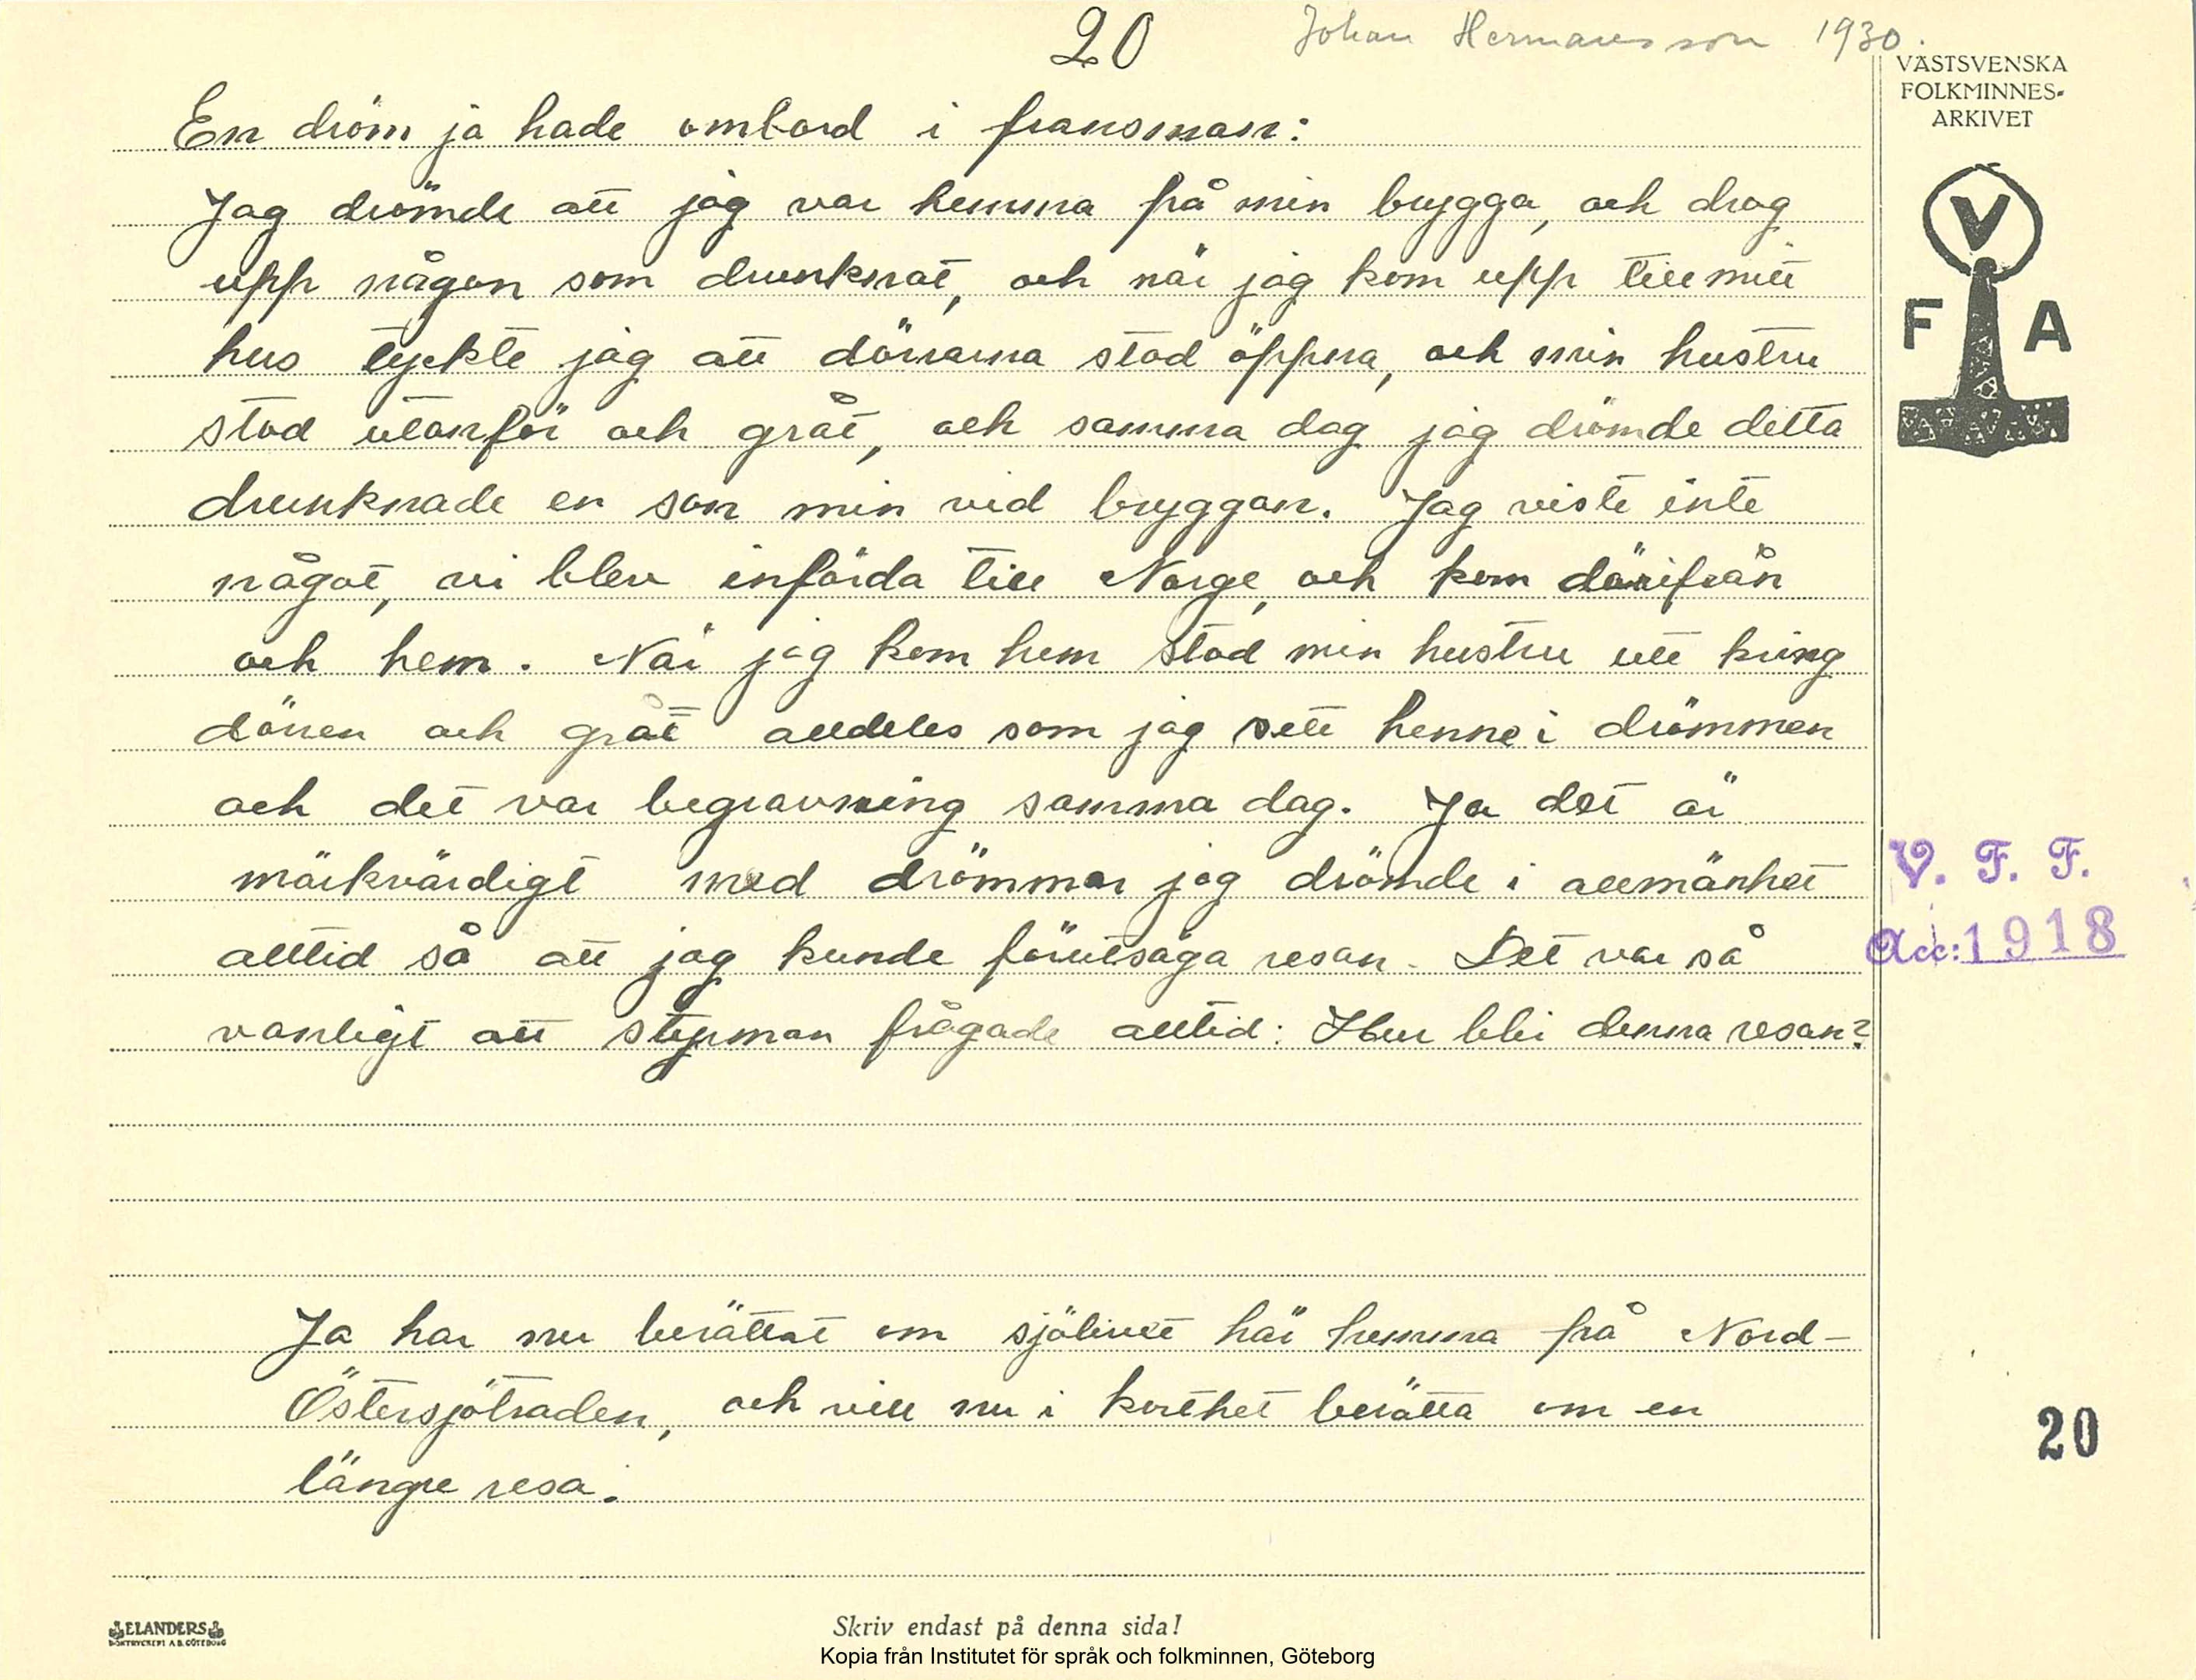 20
Johan Hermansson 1930.
VÄSTSVENSKA
FOLKMINNES-
ARKIVET
V
F A
En dröm ja hade ombord i fransman:
Jag drömde att jag var hemma på min brygga, och drog
upp någon som drunknat, och när jag kom upp till mitt
hus tyckte jag att dörrarna stod öppna, och min hustru
stod utanför och gråt, och samma dag jag drömde detta
drunknade en son min vid bryggan. Jag viste inte
något, vi blev införda till Norge, och kom därifrån
och hem. När jag kom hem stod min hustru utt kring
dörren och gråt alldeles som jag sett henne i drömmen
och det var begravning samma dag. Ja det är
märkvärdigt med drömmar jag drömde i allmänhet
alltid så att jag kunde förutsäga resan. Det var så
vanligt att styrman frågade alltid: Hur blir denna resan?
V. F. F.
Acc: 1918
Ja har nu berättat om sjölivet här hemma på Nord-
Östersjötraden, och vill nu i korthet berätta om en
längre resa.
20
ELANDERS
BOKTRYCKERI A.B. GÖTEBORG
Skriv endast på denna sida!
Kopia från Institutet för språk och folkminnen, Göteborg